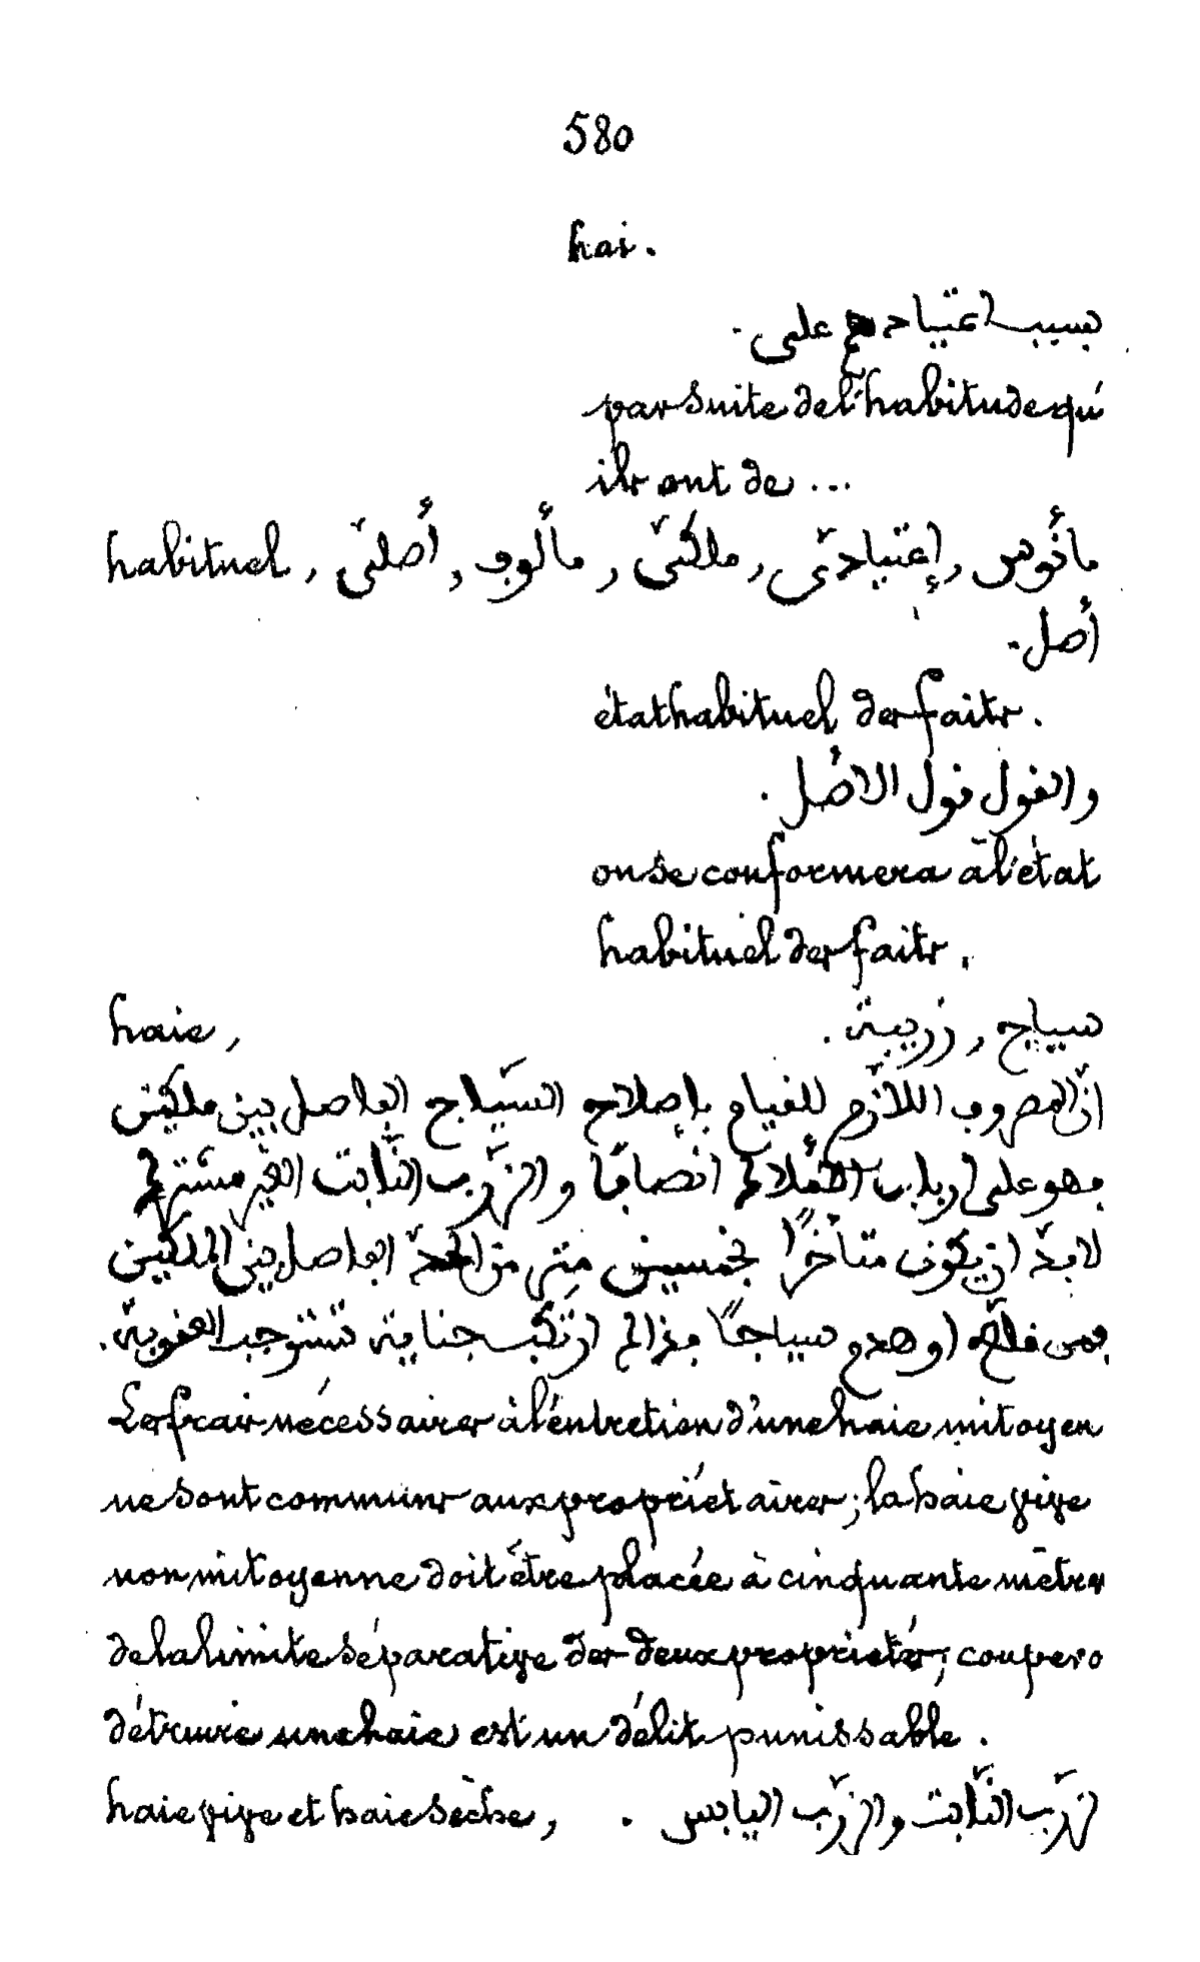 580
hai.
بسبب اعتيادهم على.
par suite de l'habitude qu'
ils ont de ...
habituel, مأنوس, إعتيادىّ, ملكىّ, مألوف, أصلىّ,
أصل.
état habituel des faits.
والقول قول الاصل.
on se conformera à l'état
habituel des faits.
haie, سياج, زريبة.
انّ المصروف اللازم للقيام بإصلاح السّياج الفاصل بين ملكين
فهو على ارباب الأملاك انصافًا والزّرب النّابت الغير مشترك
لابدّ ان يكون متأخرًا بخمسين متر من الحدّ الفاصل بين الملكين
فمن قلع او هدم سياجًا فذالك ارتكب جناية تستوجب العقوبة.
Les frais nécessaires à l'entretien d'une haie mitoyen
ne sont communs aux propriétaires; la haie vive
non mitoyenne doit être placée à cinquante mètres
de la limite séparative des deux propriétés; couper o
détruire une haie est un délit punissable.
haie vive et haie sèche, زرّب النّابت والزّرب اليابس.